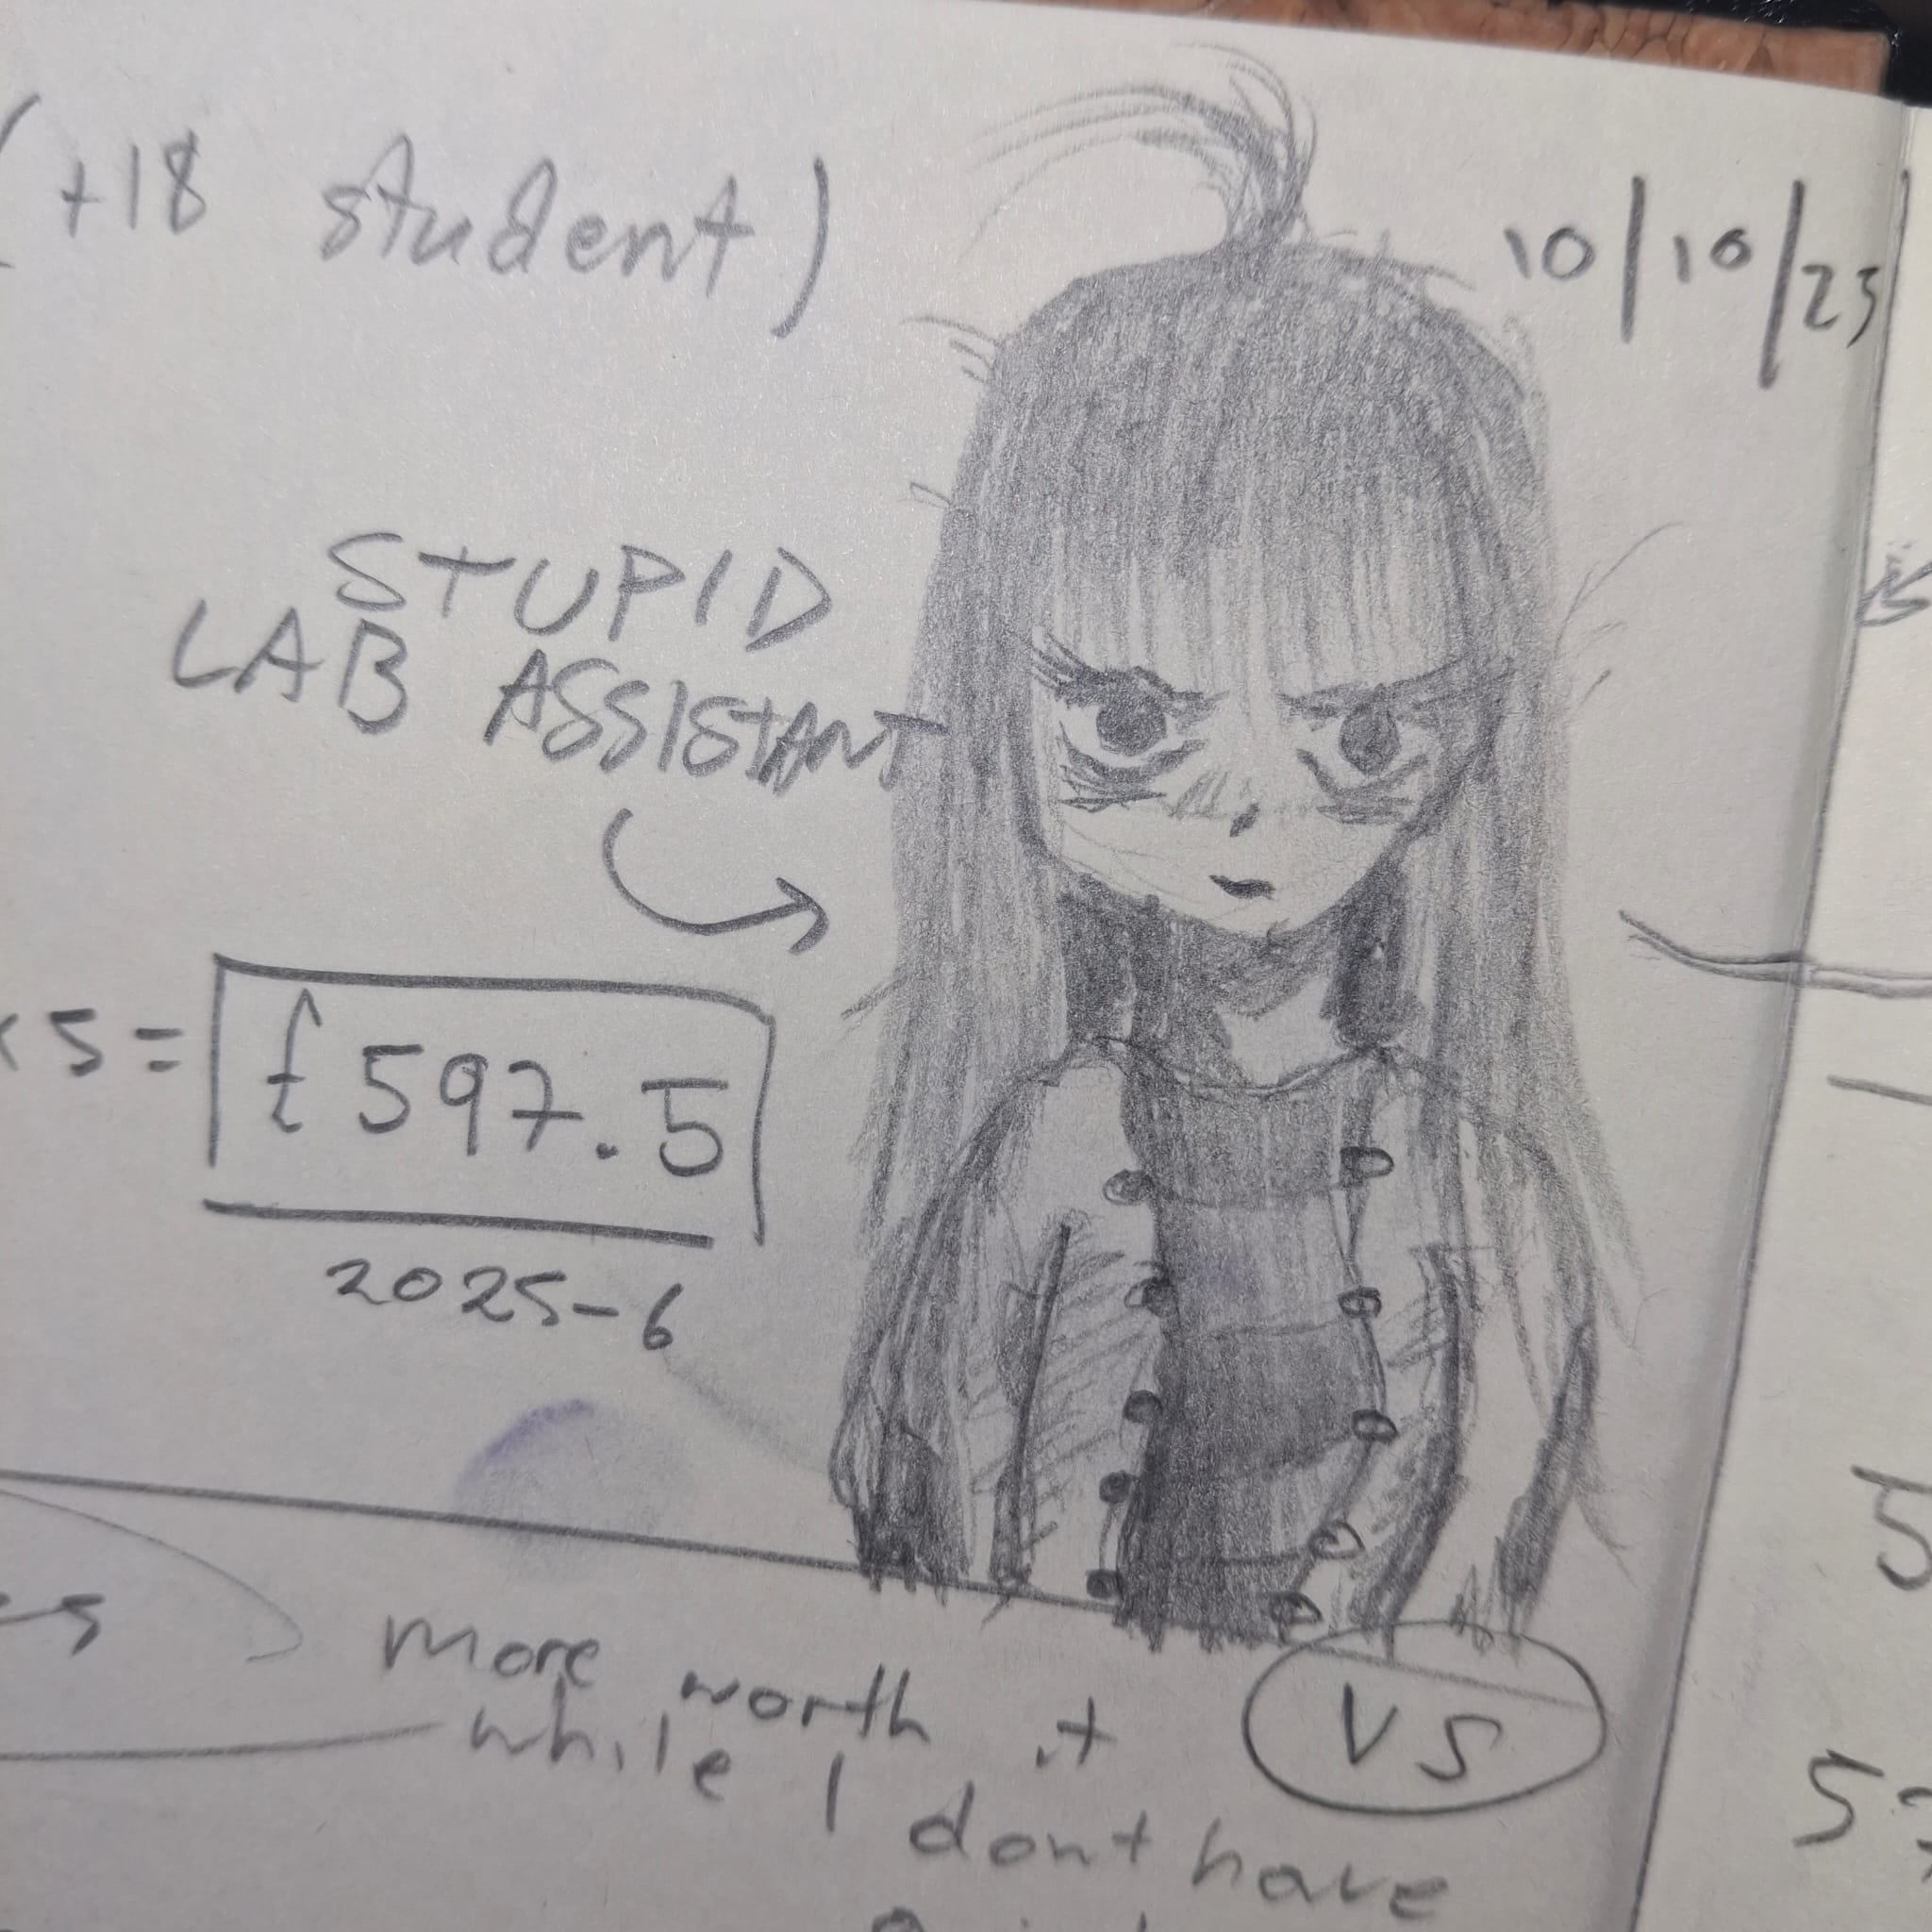 (+18 student)
10/10/25
STUPID
LAB ASSISTANT
x5 = £597.5
2025-6
more worth it
while I don't have
VS
5